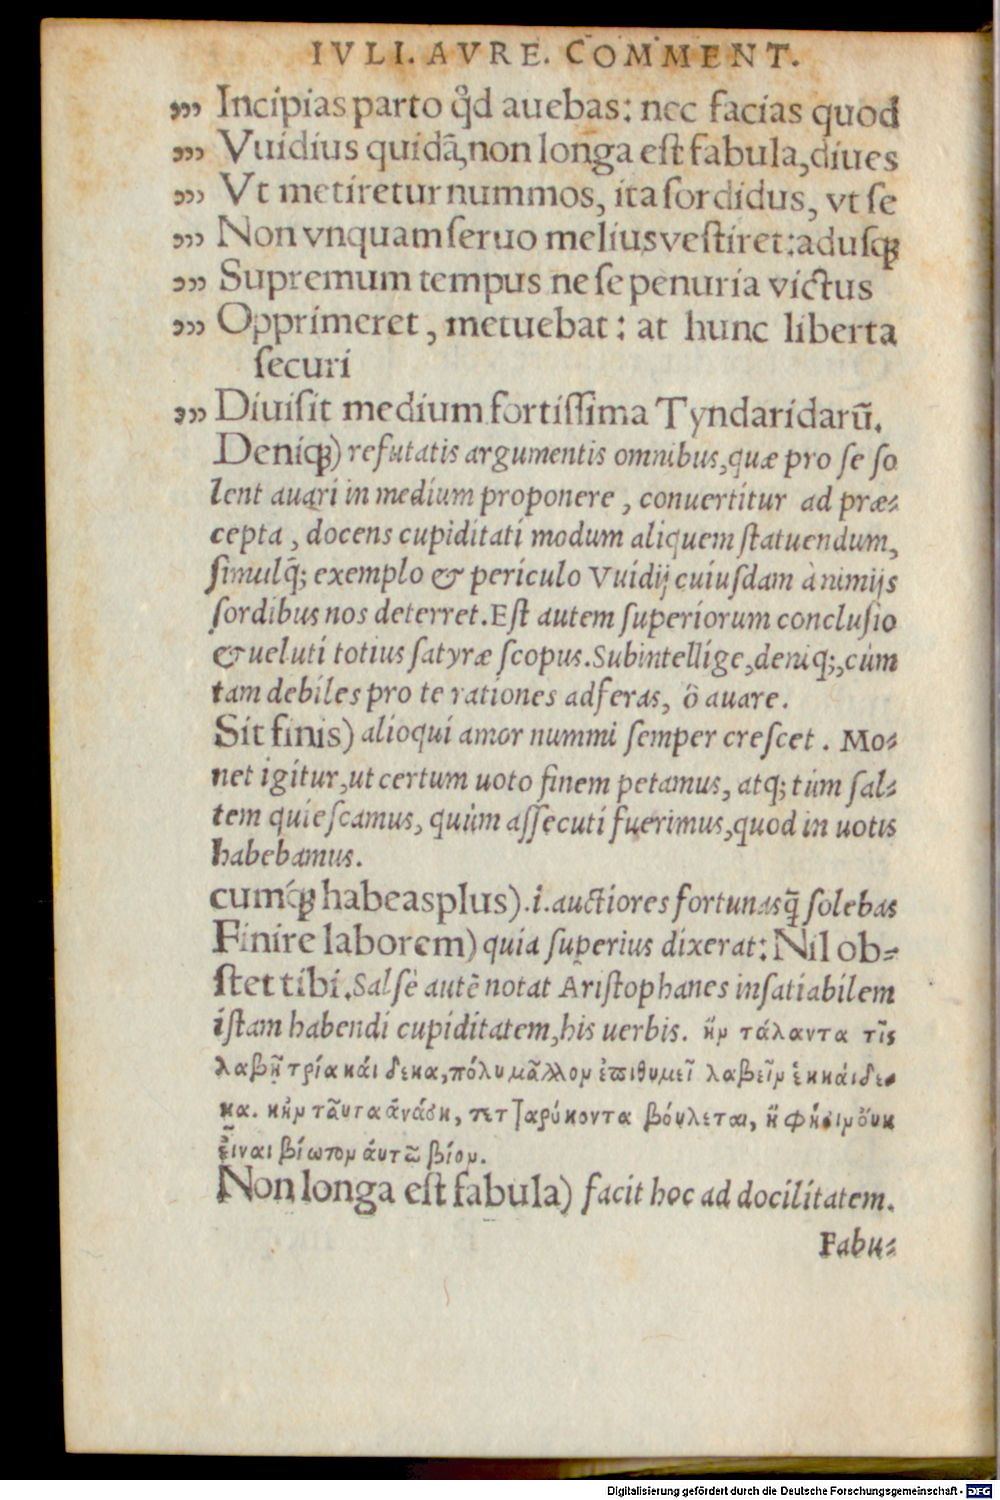 IVLI. AVRE. COMMENT.
„ Incipias parto q̊d auebas: nec facias quod
„ Vuidius quidã, non longa est fabula, diues
„ Vt metiretur nummos, ita sordidus, vt se
„ Non vnquam seruo melius vestiret: adusq̃
„ Supremum tempus ne se penuria victus
„ Opprimeret, metuebat: at hunc liberta
securi
„ Diuisit medium fortissima Tyndaridarũ.
Deniq;) refutatis argumentis omnibus, quæ pro se so
lent auari in medium proponere, conuertitur ad præ-
cepta, docens cupiditati modum aliquem statuendum,
simulq́; exemplo & periculo Vuidij cuiusdam à nimijs
sordibus nos deterret. Est autem superiorum conclusio
& ueluti totius satyræ scopus. Subintellige, deniq;, cùm
tam debiles pro te rationes adferas, ô auare.
Sit finis) alioqui amor nummi semper crescet. Mo-
net igitur, ut certum uoto finem petamus, atq; tùm sal-
tem quiescamus, quùm assecuti fuerimus, quod in uotis
habebamus.
cumq́; habeas plus).i. auctiores fortunas q̃ solebas
Finire laborem) quia superius dixerat: Nil ob-
stet tibi. Salsè autẽ notat Aristophanes insatiabilem
istam habendi cupiditatem, his uerbis. ἤν τάλαντα τῖς
λαβῇ τρία κάι δεκα, πόλυ μᾶλλον ἐπιθυμεῖ λαβεῖν ἑκκάιδε-
κα. κἤν τᾶυτα ἀνύσῃ, τετταράκοντα βόυλεται, ἤ φήσιν ὄυκ
ἔιναι βίωτον ἀυτῶ βίον.
Non longa est fabula) facit hoc ad docilitatem.
Fabu-
Digitalisierung gefördert durch die Deutsche Forschungsgemeinschaft - DFG